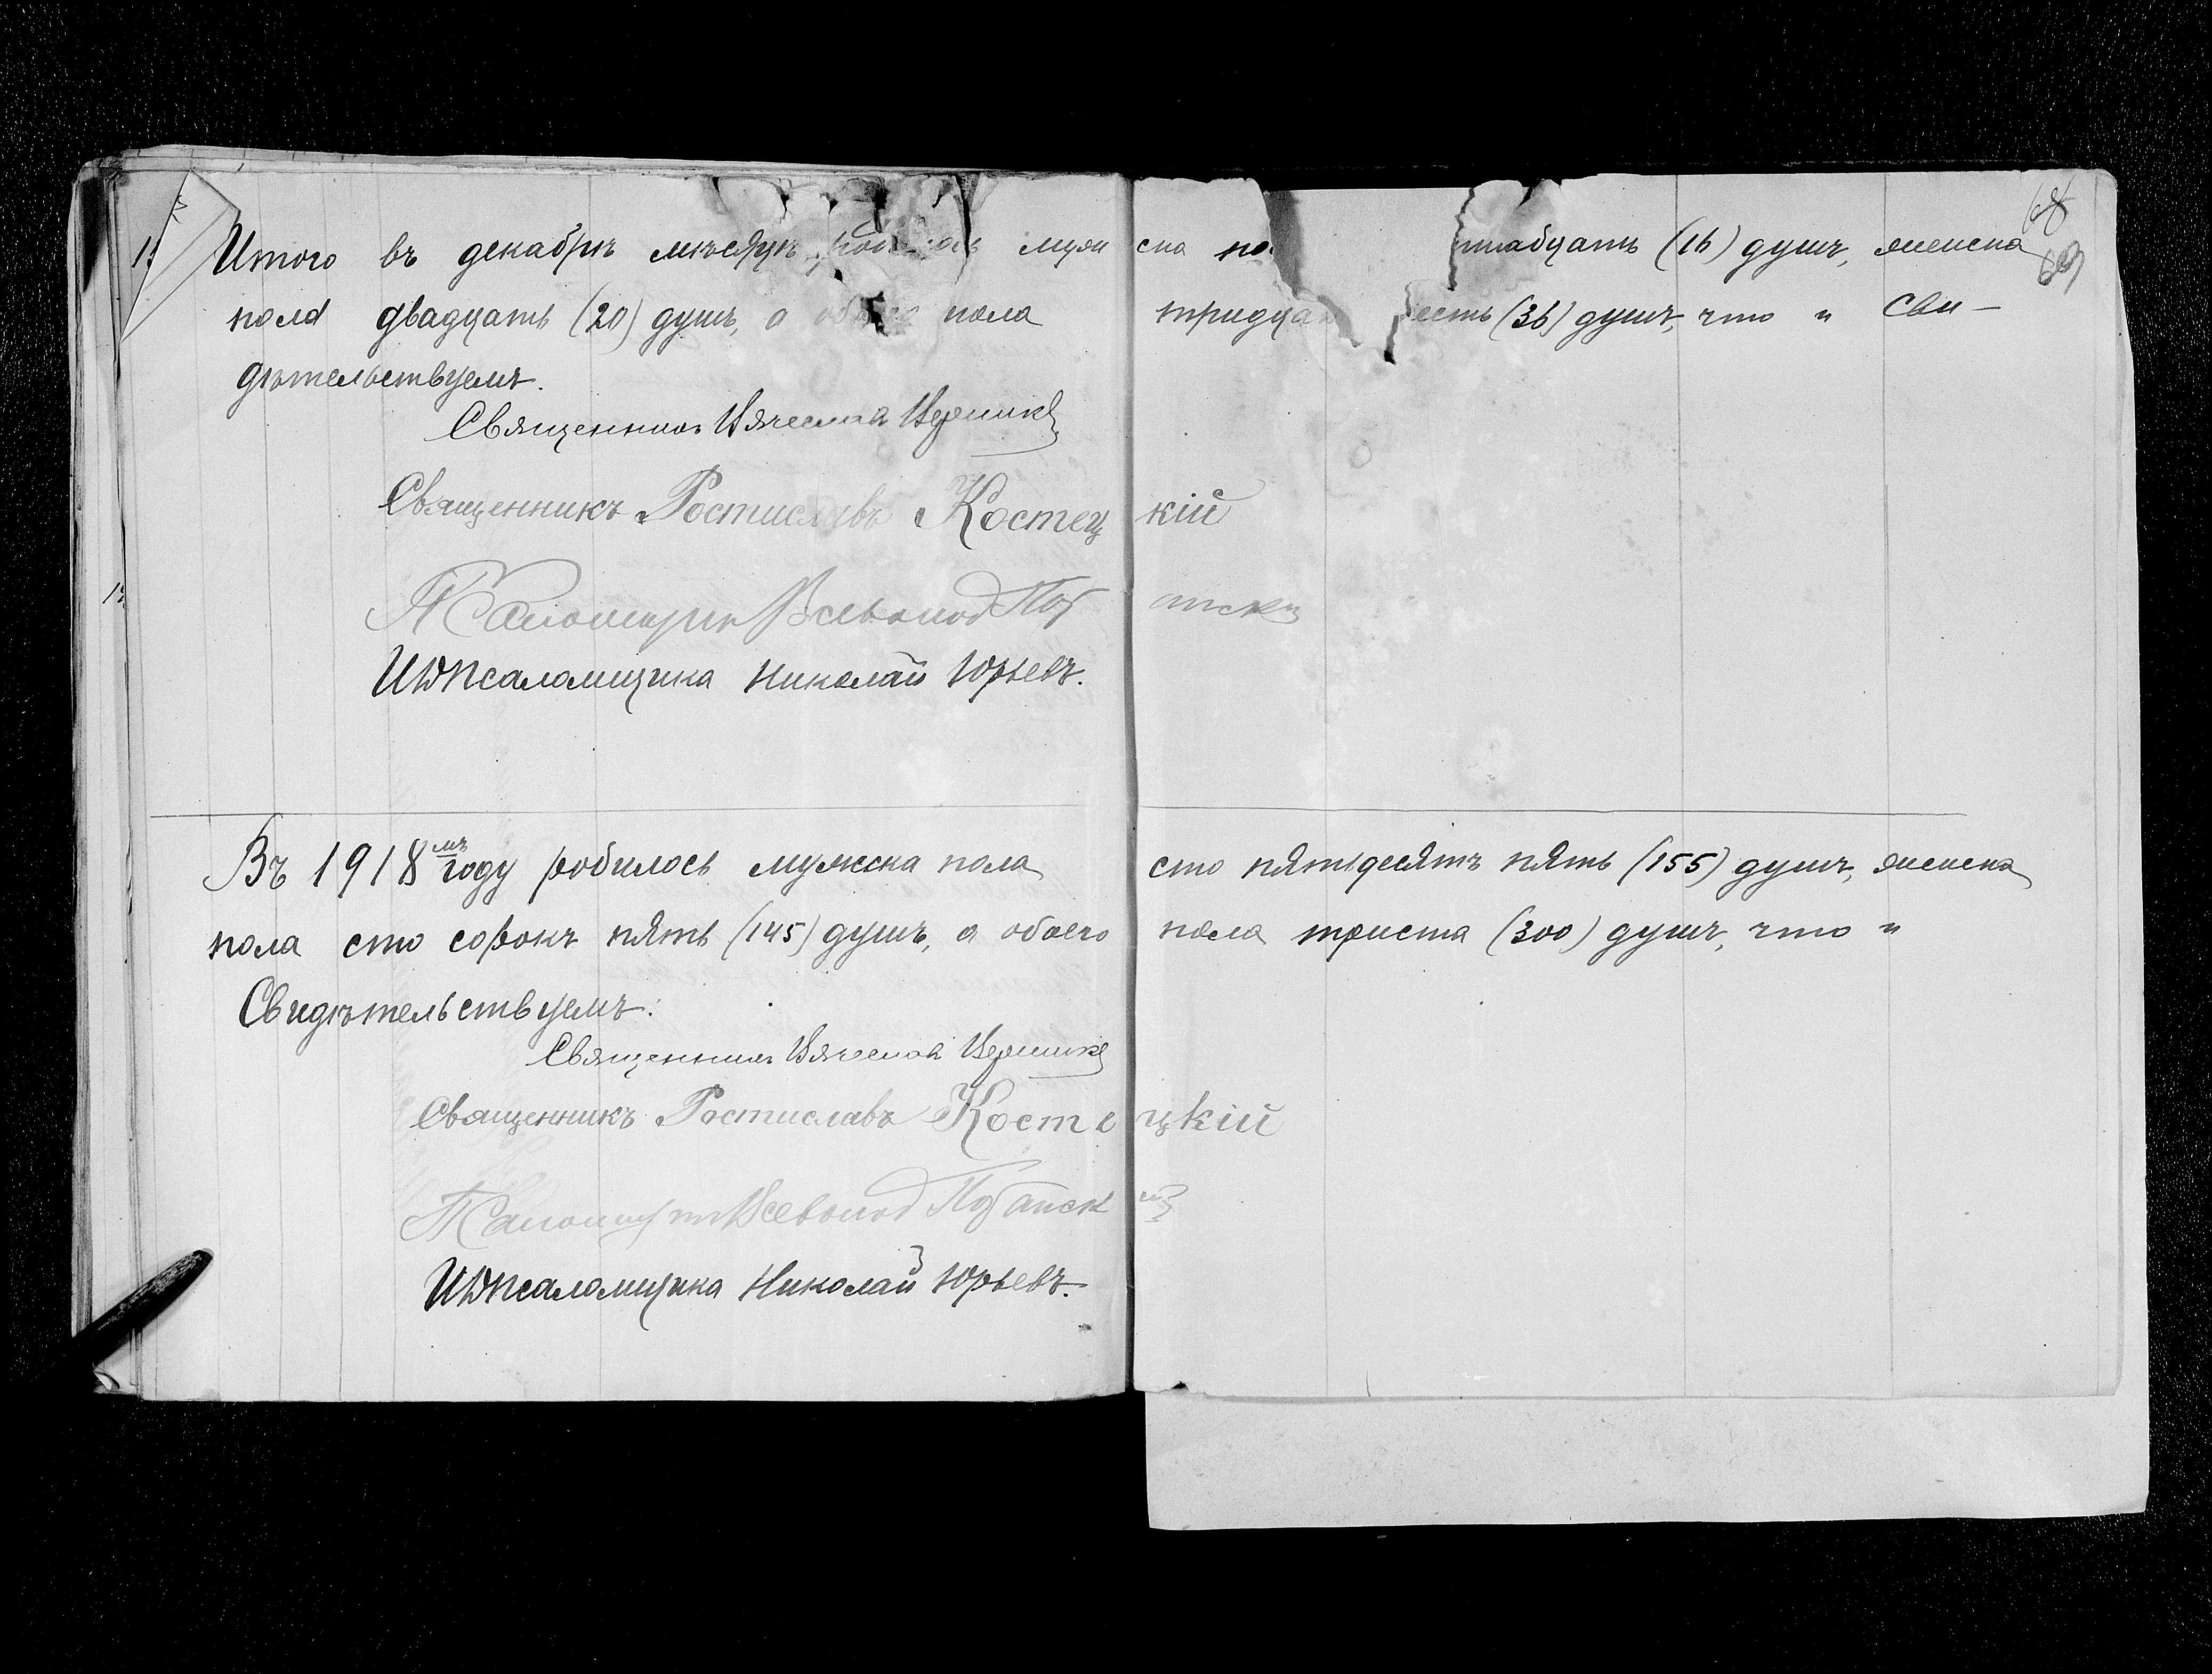 68
69
Итого въ декабрѣ мѣсяцѣ родилось мужска по надцать (16) душъ, женска
пола двадцать (20) душъ, а обоего пола тридца есть (36) душъ, что и сви-
дѣтельствуемъ.
Священникъ Вячеславъ
Священникъ Ростиславъ Костецкій
Псаломщикъ Всеволод
И Д Псаломщика Николай Юрьевъ.
Въ 1918мъ году родилось мужска пола сто пятьдесятъ пять (155) душъ, женска
пола сто сорокъ пять (145) душъ, а обоего пола триста (300) душъ, что и
Свидѣтельствуемъ:
Священникъ Вячеславъ
Священникъ Ростиславъ Костецкій
Псаломщикъ Всеволод
И Д Псаломщика Николай Юрьевъ.